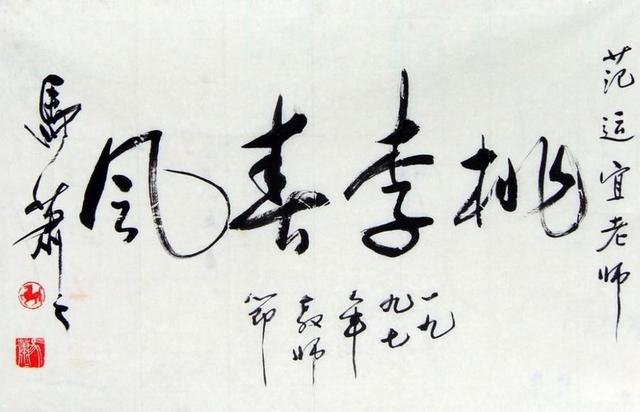 范运宜老师
桃李春风
一九九七年教师节
馬萧々